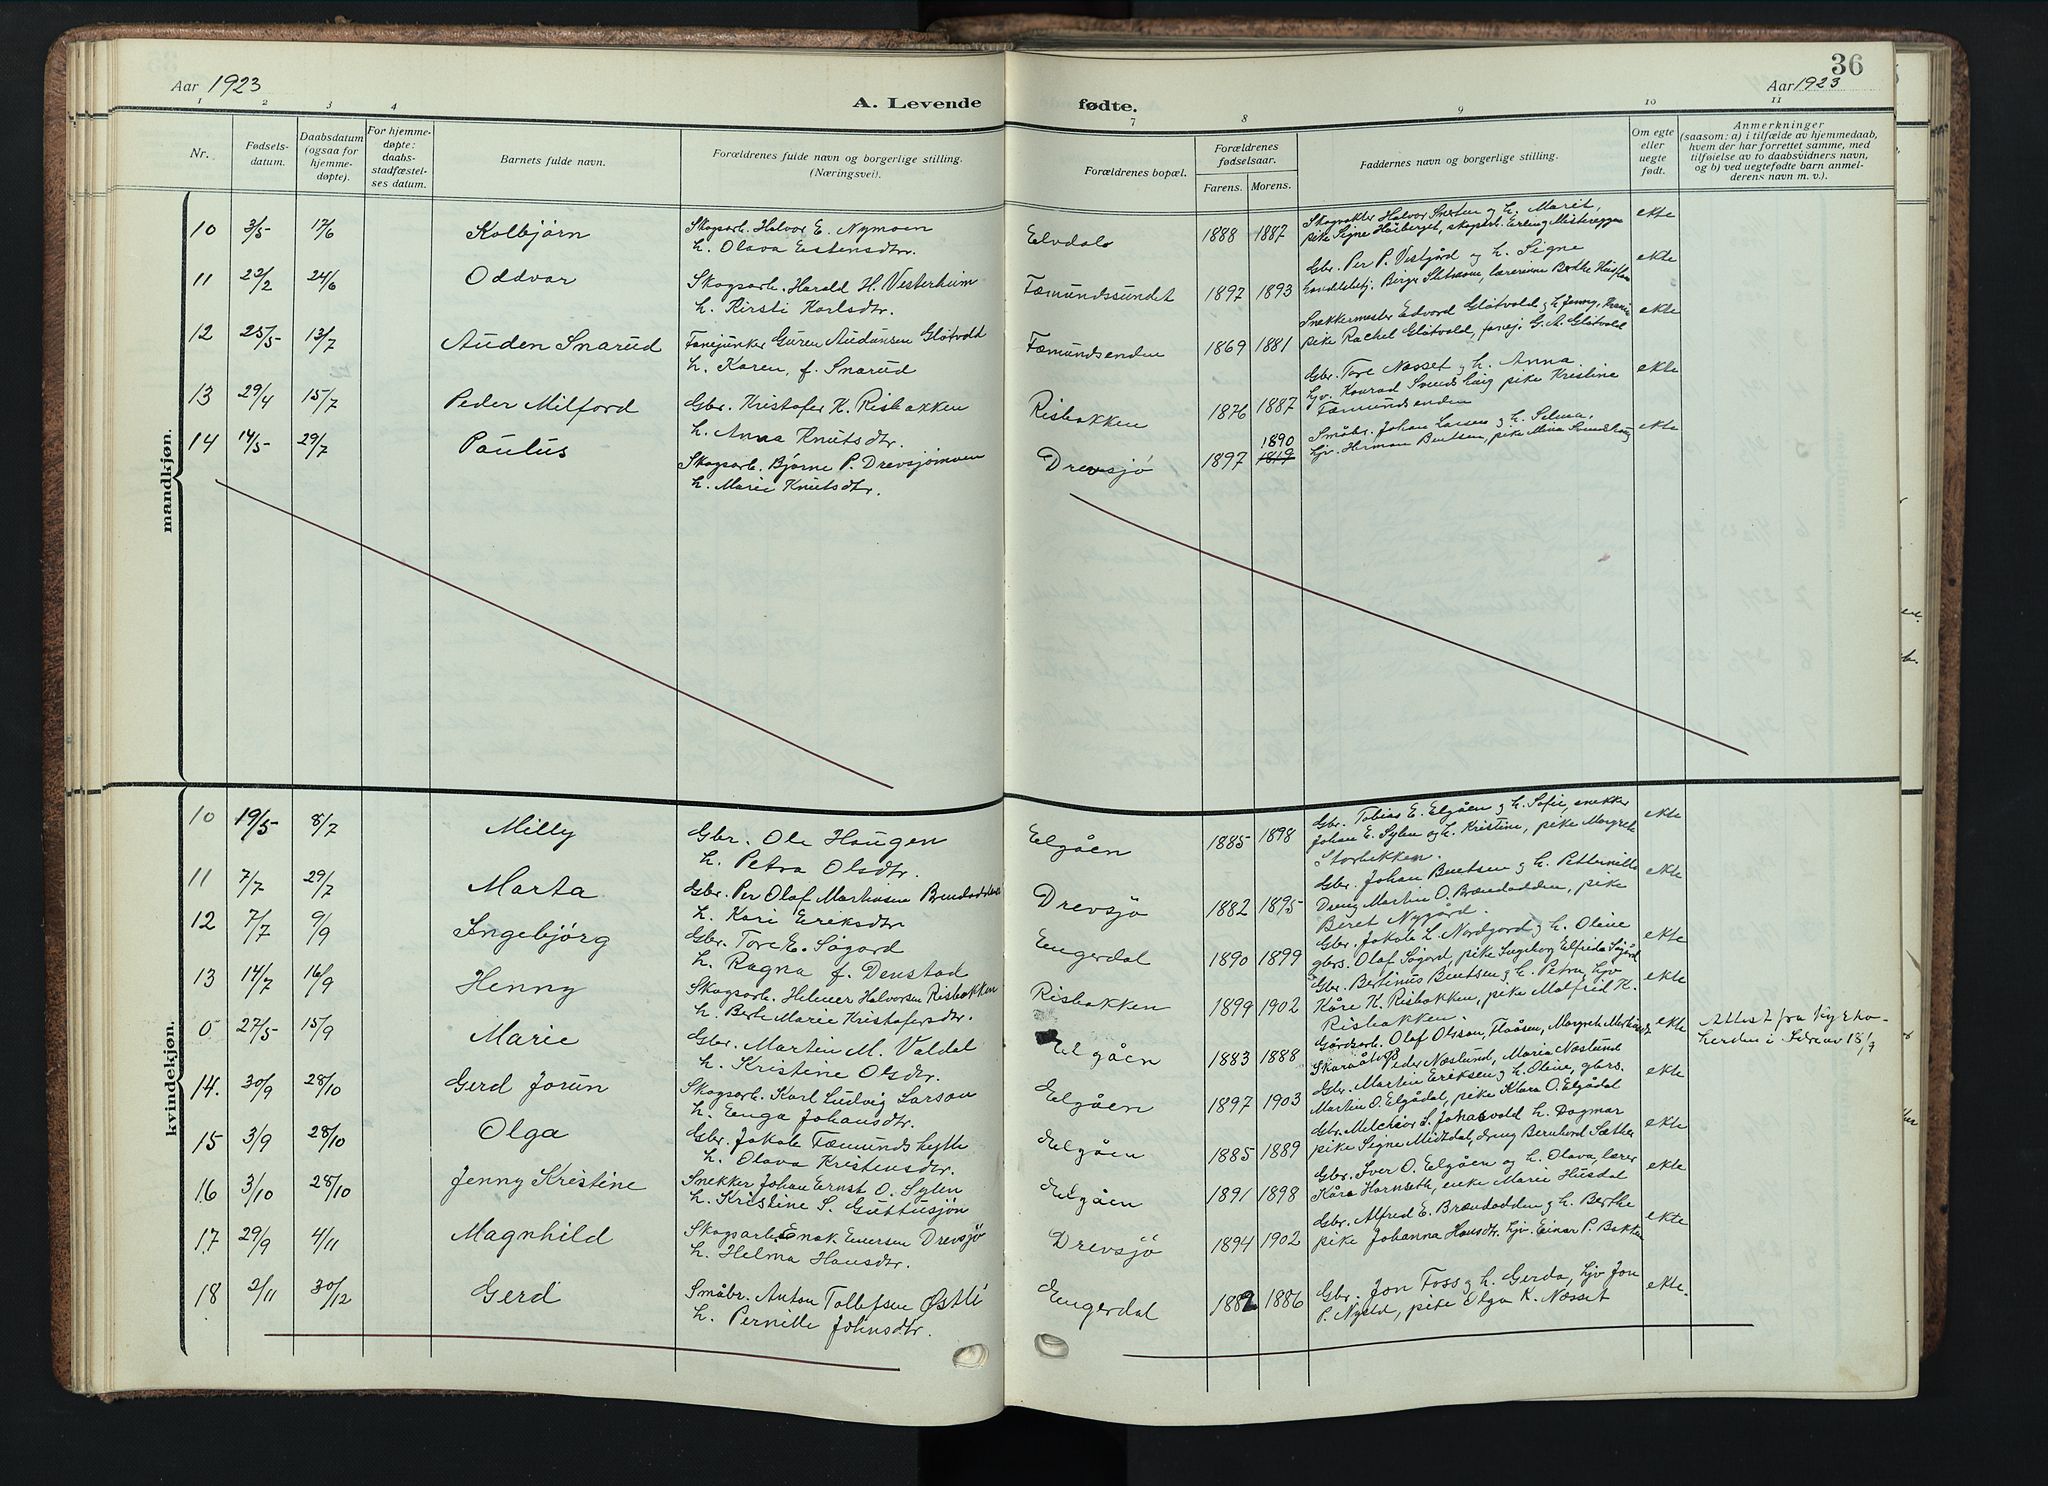 Aar 1923
A. Levende
fødte.
36
Aar 1923
1 2 3 4 7 8 9 10 11
Nr.
Fødsels-
datum.
Daabsdatum
(ogsaa for
hjemme-
døpte).
For hjemme-
døpte:
daabs-
stadfæstel-
ses datum.
Barnets fulde navn.
Forældrenes fulde navn og borgerlige stilling.
(Næringsvei).
Forældrenes bopæl.
Forældrenes
fødselsaar.
Farens. Morens.
Faddernes navn og borgerlige stilling.
Om egte
eller
uegte
født.
Anmerkninger
(saasom: a) i tilfælde av hjemmedaab,
hvem der har forrettet samme, med
tilføielse av to daabsvidners navn,
og b) ved uegtefødte barn anmel-
derens navn m. v.).
mandkjøn.
10 3/5 17/6 Kolbjørn
Skogsarb. Halvor E. Nymoen
h. Olava Estensdtr.
Elvdalo 1888 1887
Skogvokter Halvor Sorten og h. Marit,
pike Signe Haaberget, skogsarb. Erling Mistereggen
ekte
11 22/2 24/6 Oddvar
Skogsarb. Harald H. Vesterheim
h. Kirsti Karlsdtr.
Fæmundssundet 1897 1893
Gbr. Per P. Vestgård og h. Signe
handelsbetj. Birger Sletmoen, lærerinne Borthe
ekte
12 25/5 13/7 Auden Snarud
Fanejunker Guren Audunsen Gløtvold
h. Karen, f. Snarud
Fæmundsenden 1869 1881
Snekkermester Edvard Gløtvold og h. Jenny,
pike Rachel Gløtvold, fanej. G. A. Gløtvold
ekte
13 29/4 15/7 Peder Milford
Gbr. Kristofer K. Risbakken
h. Anna Knutsdtr.
Risbakken 1876 1887
Gbr. Tore Nosset og h. Anna
hjv. Konrad Svendshaug pike Kristine
Fæmundsenden
ekte
14 14/5 29/7 Paulus
Skogsarb. Bjørne P. Drevsjømoen
h. Marie Knutsdtr.
Drevsjø 1897 1890 1819
Småbr. Johan Larsen og h. Selma,
hjv. Herman Bentsen, pike Mina Svendshaug
ekte
kvindekjøn.
10 19/5 8/7 Milly
Gbr. Ole Haugen
h. Petra Olsdtr.
Elgåen 1885 1898
Gbr. Tobias E. Elgåen og h. Sofie, snekker
Johan E. Sylen og h. Kristine, pike Margrete
Storbekken.
ekte
11 7/7 29/7 Marta
Gbr. Per Olaf Martinsen
h. Kari Eriksdtr
Drevsjø 1882 1895
Gbr. Johan Bentsen og h. Petternille
Dreng Martin O. Brændodden, pike
Beret Nygård.
ekte
12 7/7 9/9 Ingebjørg
Gbr. Tore E. Søgård
h. Ragna f. Denstad
Engerdal 1890 1899
Gbr. Jakob L. Nordgard og h. Oline
gbrs. Olaf Søgård, pike Ingeborg Elfrida Søgård
ekte
13 14/7 16/9 Henny
Skogsarb. Helmer Halvorsen Risbakken
h. Berte Marie Kristofersdtr.
Risbakken 1899 1902
Gbr. Bertinus Bentsen og h. Petra, hjv
Kåre K. Risbakken, pike Malfred K.
Risbakken.
ekte
0 27/5 15/9 Marie
Gbr. Martin M. Valdal
h. Kristine Olsdtr.
Elgåen 1883 1888
Gårdsarb. Olaf Olsson, Floåsen, Margrete
Peder Næslund, Maria Næslund
ekte
Attest fra Kyrko-
herden i Idre av 18/9
14. 30/9 28/10 Gerd Jorun
Skogsarb. Karl Ludvig Larson
h. Enga Johansdtr.
Elgåen 1897 1903
Gbr. Martin Eriksen og h. Oline, gbrs.
Martin O. Elgådal, pike Klara O. Elgådal
ekte
15 3/9 28/10 Olga
Gbr. Jakob Fæmundshytte
h. Olava Kristensdtr.
Elgåen 1885 1889
Gbr. Melchior S. Johnsvold h. Dagmar
pike Signe Midtdal, dreng Bernhard Sæther
ekte
16 3/10 28/10 Jenny Kristine
Snekker Johan Ernst O. Sylen
h. Kristine S. Guttusjøn
Elgåen 1891 1898
Gbr. Iver O. Elgåen og h. Olava, lærer
Kåre Hornseth, enke Marie Husdal
ekte
17 29/9 4/11 Magnhild
Skogsarb. Enok Emersen Drevsjø
h. Helma Hansdtr.
Drevsjö 1894 1902
Gbr. Alfred E. Brændodden og h. Berthe
pike Johanna Hansdtr. hjv. Einar P. Bakken
ekte
18 2/11 30/12 Gerd
Småbr. Anton Tollefsen Østli
h. Pernille Johnsdtr.
Engerdal 1882 1886
Gbr. Jon Foss og h. Gerda, hjv Jon
P. Nysted, pike Olga K. Næsset
ekte.